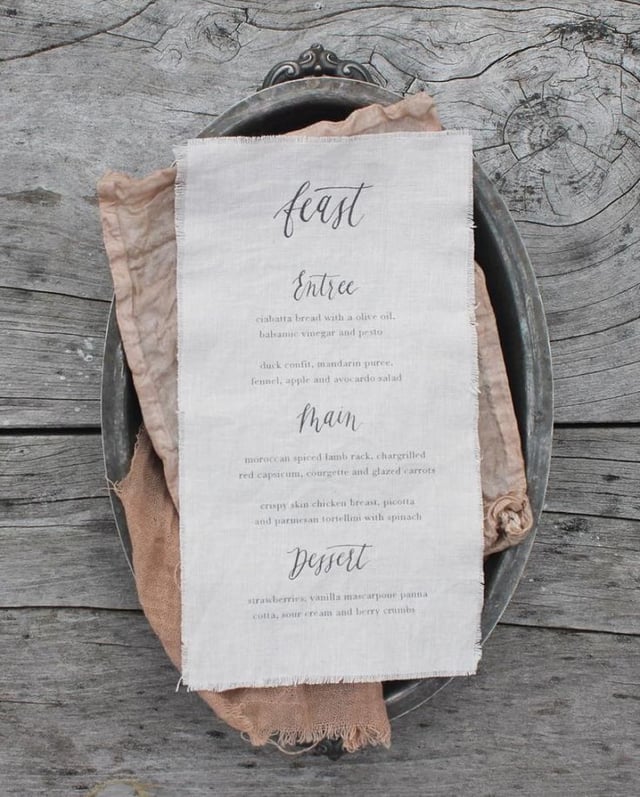 feast
Entree
ciabatta bread with a olive oil,
balsamic vinegar and pesto
duck confit, mandarin puree,
fennel, apple and avocardo salad
Main
moroccan spiced lamb rack, chargrilled
red capsicum, courgette and glazed carrots
crispy skin chicken breast, picotta
and parmesan tortellini with spinach
Dessert
strawberries, vanilla mascarpone panna
cotta, sour cream and berry crumbs